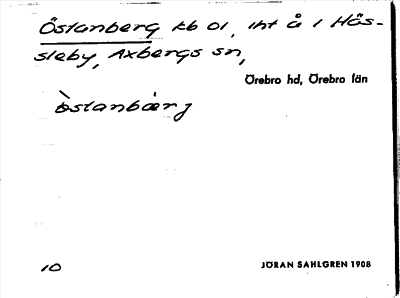 Östanberg kb 01, lht å 1 Häs-
sleby, Axbergs sn,
Örebro hd, Örebro län
òstanbærj
10
JÖRAN SAHLGREN 1908